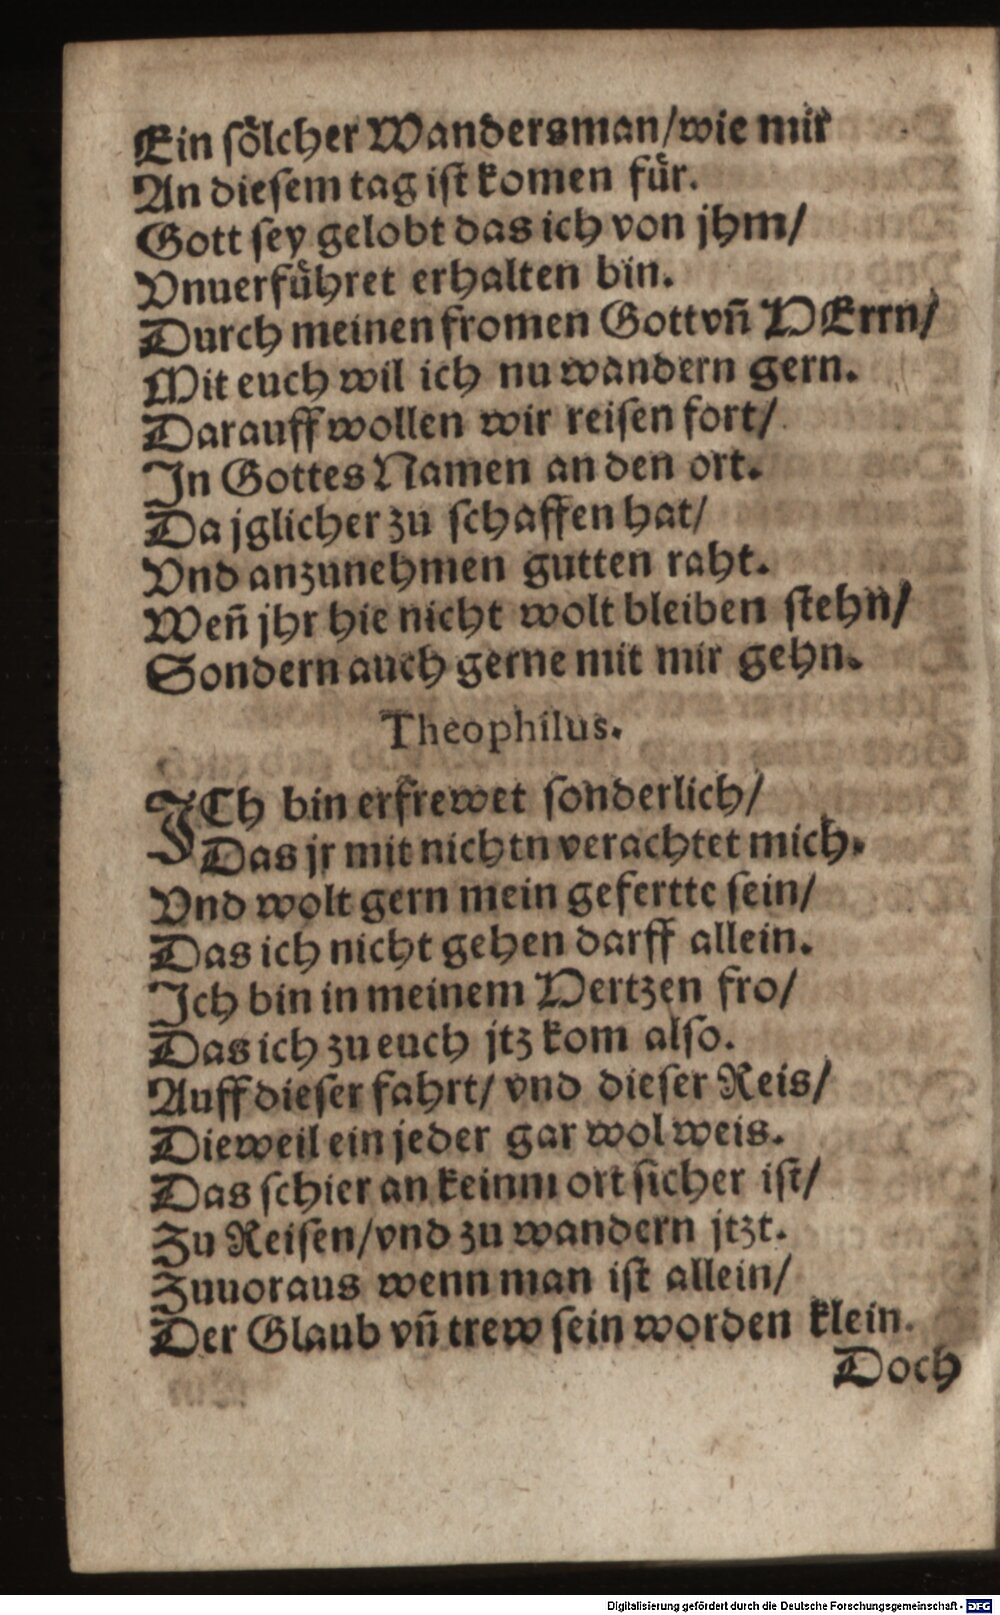 Ein sölcher Wandersman/wie mir
An diesem tag ist komen für.
Gott sey gelobt das ich von jhm/
Vnuerführet erhalten bin.
Durch meinen fromen Gott vñ HErrn/
Mit euch wil ich nu wandern gern.
Darauff wollen wir reisen fort/
In Gottes Namen an den ort.
Da jglicher zu schaffen hat/
Vnd anzunehmen gutten raht.
Weñ jhr hie nicht wolt bleiben stehn/
Sondern auch gerne mit mir gehn.
Theophilus.
ICh bin erfrewet sonderlich/
Das jr mit nichtn verachtet mich.
Vnd wolt gern mein gefertte sein/
Das ich nicht gehen darff allein.
Ich bin in meinem Hertzen fro/
Das ich zu euch jtz kom also.
Auff dieser fahrt/ vnd dieser Reis/
Dieweil ein jeder gar wol weis.
Das schier an keinm ort sicher ist/
Zu Reisen/vnd zu wandern jtzt.
Zuuoraus wenn man ist allein/
Der Glaub vñ trew sein worden klein.
Doch
Digitalisierung gefördert durch die Deutsche Forschungsgemeinschaft - DFG